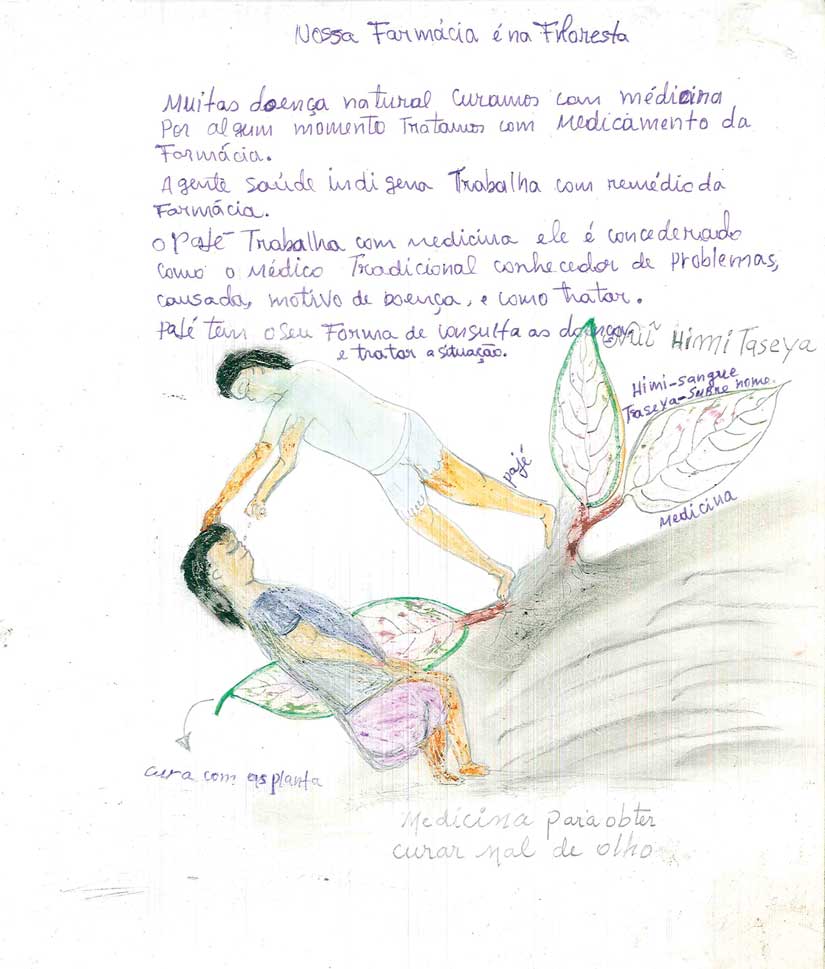 Nossa Farmácia é na Filoresta
Muitas doença natural curamos com médicina
Por algum momento Tratamos com Medicamento da
Farmácia.
Agente saúde indigena Trabalha com remédio da
Farmácia.
O Pajé Trabalha com medicina ele é concederado
como o Médico Tradicional conhecedor de Problemas,
causada, motivo de doença, e como tratar.
Pajé tem o seu Forma de consulta as doença,
e tratar a situação.
Himi Taseya
Himi-sangue
Traseya-Subre nome.
pajé
Medicina
cura com as planta
Medicina para obter
curar mal de olho